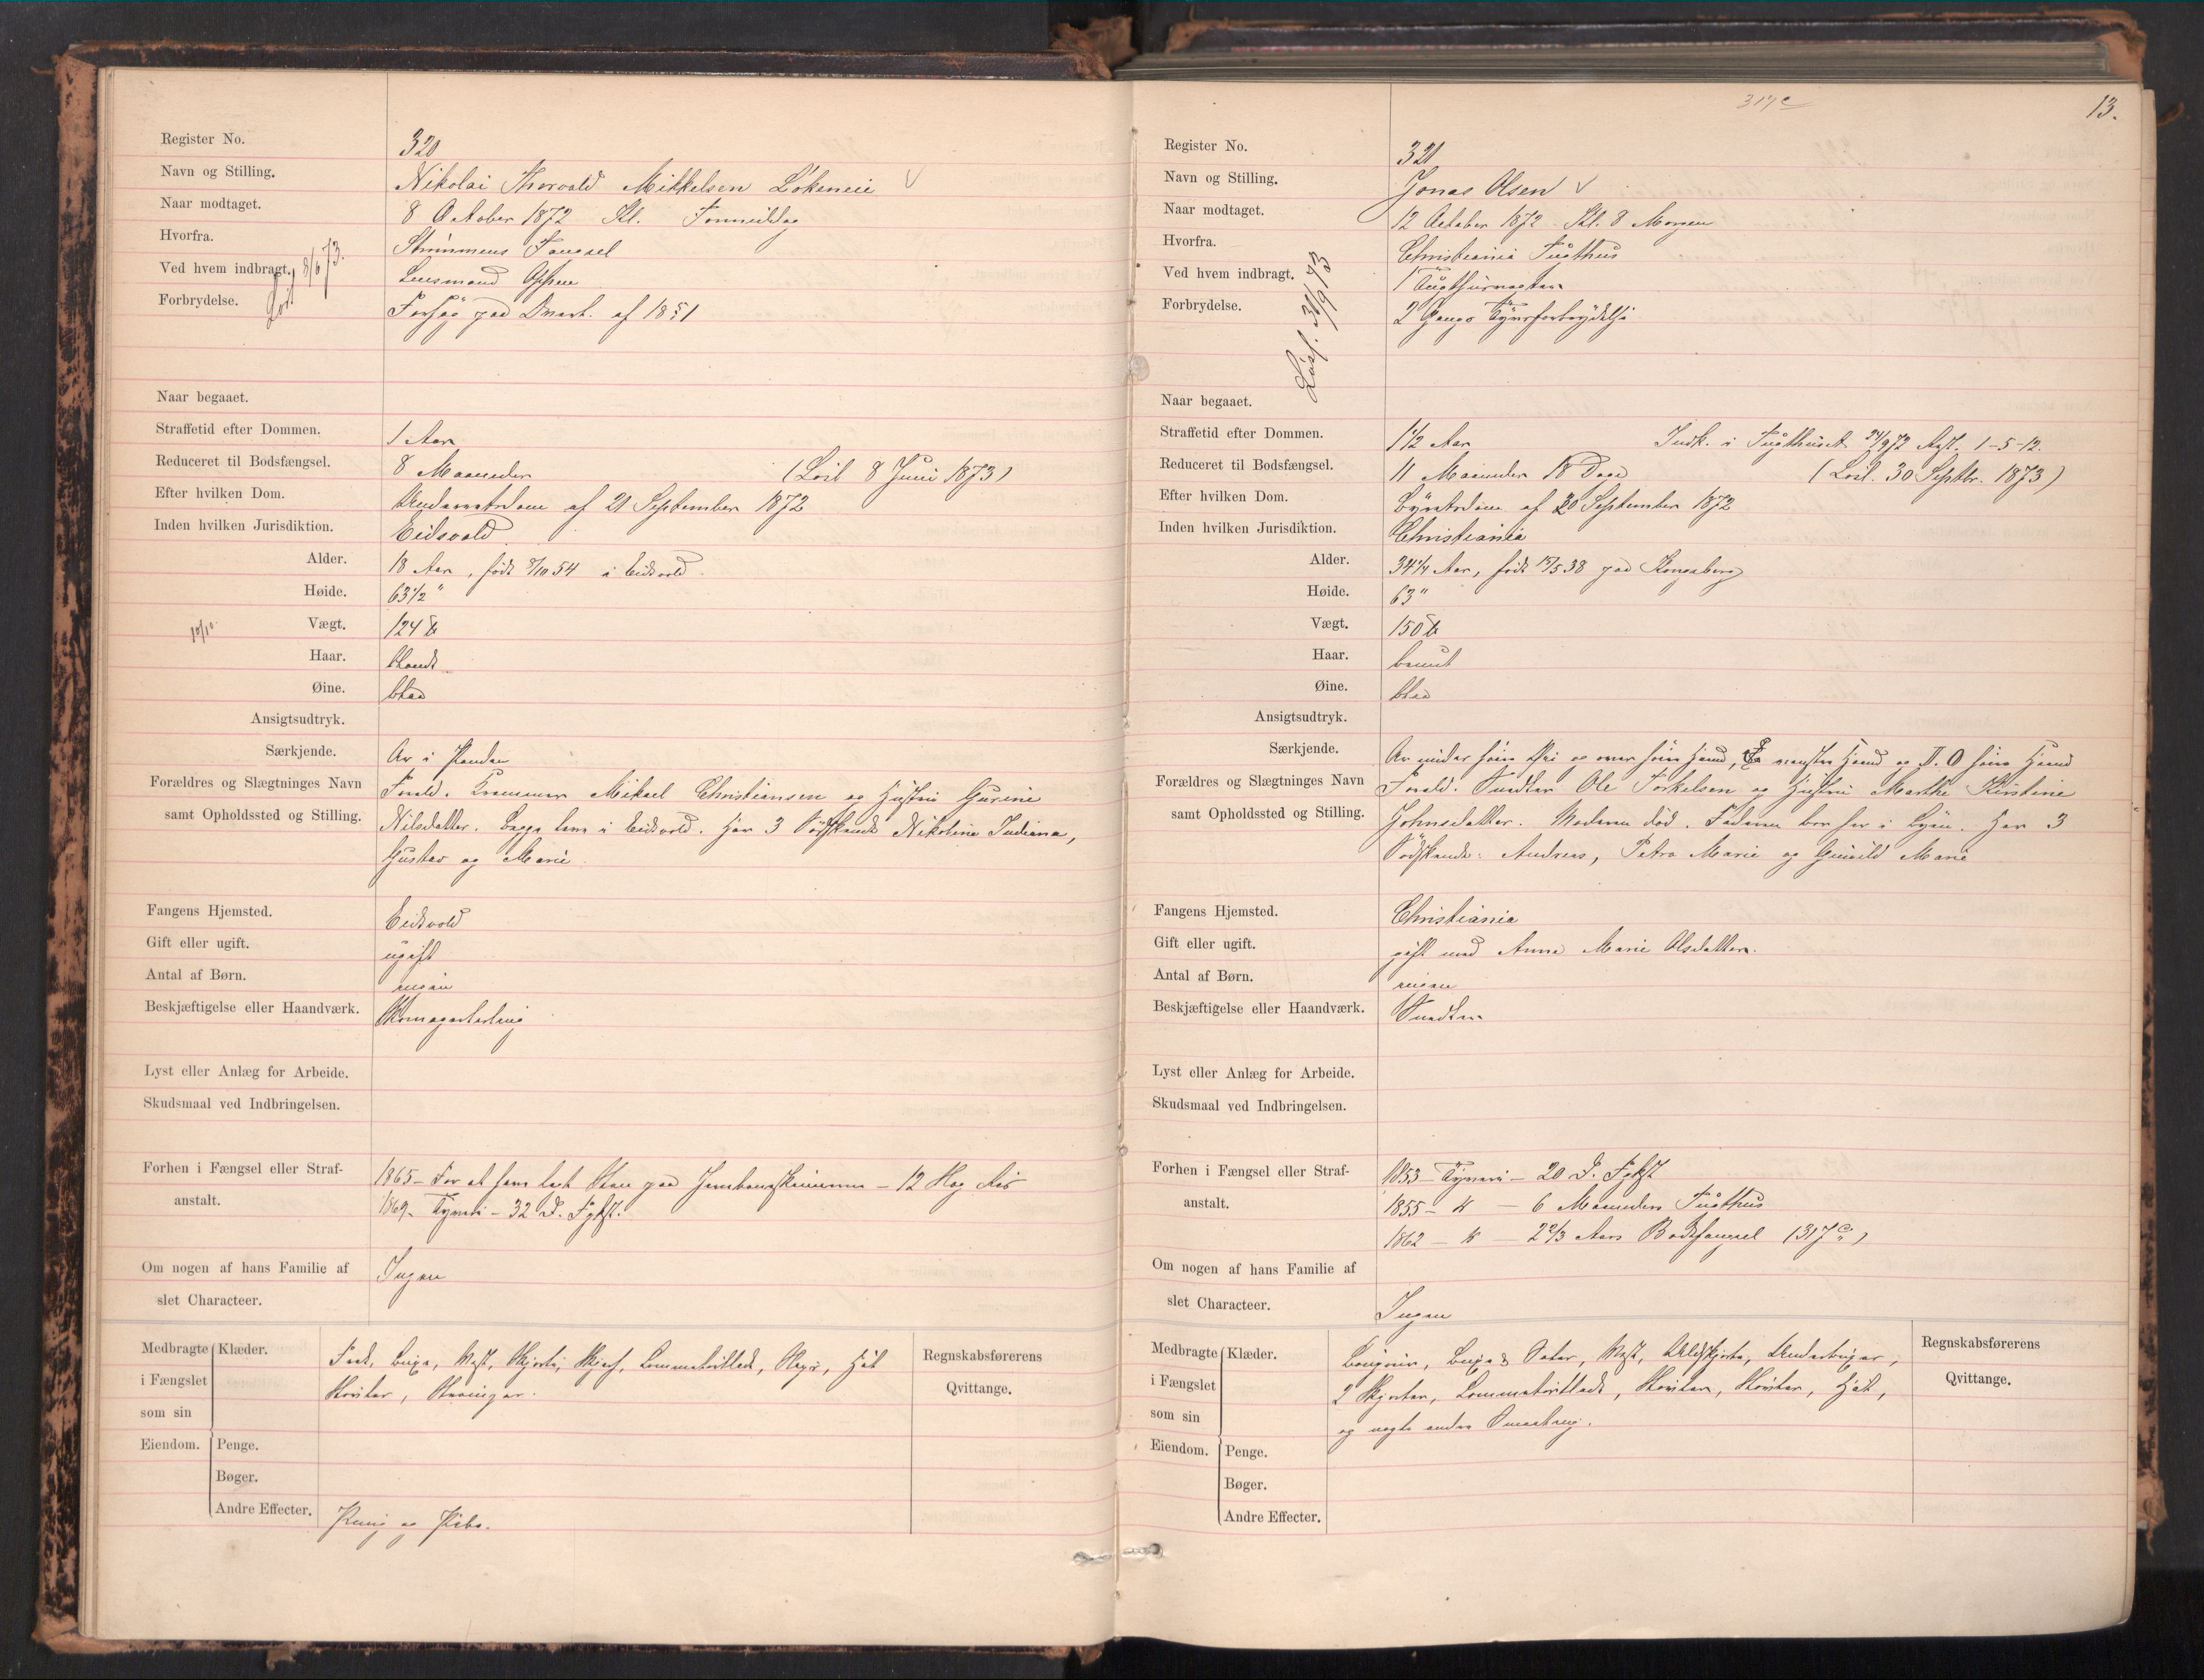 Register No. 320
Navn og Stilling. Nikolai Thorvald Mikkelsen Lökeneie
Naar modtaget. 8 October 1872 Kl. Formiddag
Hvorfra. Strömmens Fængsel
Ved hvem indbragt. Lensmand
Forbrydelse. Forsøg paa af 1851
Løsl 8/6 73.
Naar begaaet.
Straffetid efter Dommen. 1 Aar
Reduceret til Bodsfængsel. 8 Maaneder (Løsl 8 Juni 1873)
Efter hvilken Dom. Underretsdom af 21 September 1872
Inden hvilken Jurisdiktion. Eidsvold
Alder. 18 Aar, født 8/10 54 i Eidsvold.
Høide. 63 1/2 "
Vægt. 124 ℔
Haar. blondt
Øine. blaa
Ansigtsudtryk.
Særkjende. Ar i Panden
Forældres og Slægtninges Navn Foræld. Mikael Christiansen og Hustru Gurine
samt Opholdssted og Stilling. Nilsdatter. Begge leve i Eidsvold. Har 3 Södskende Nikoline Indiana,
Gustav og Marie
Fangens Hjemsted. Eidsvold
Gift eller ugift. ugift
Antal af Børn. ingen
Beskjæftigelse eller Haandværk. Skomagerlærling
Lyst eller Anlæg for Arbeide.
Skudsmaal ved Indbringelsen.
Forhen i Fængsel eller Straf- 1865 – For at have lagt Sten paa Jernbaneskinnerne – 12 Slag Ris
anstalt. 1869 – Tyveri – 32 D. Fgkst.
Om nogen af hans Familie af Ingen
slet Characteer.
Medbragte Klæder. Frak, Buxe, Vest, Skjorte, Skjerf, Lommetörklæde, Hat
i Fængslet Støvler, Strømper.
som sin
Eiendom. Penge.
Bøger.
Andre Effecter. Pung og Pibe.
Regnskabsførerens
Qvittange.
317 c
13.
Register No. 321
Navn og Stilling. Jonas Olsen
Naar modtaget. 12 October 1872 Kl. 8 Morgen
Hvorfra. Christiania Tugthus
Ved hvem indbragt. 1 Tugthusvægter
Forbrydelse. 2 Gangs Tyvsforbrydelse
Løsl. 30/9 73
Naar begaaet.
Straffetid efter Dommen. 1 1/2 Aar Indk. i Tugthuset 24/9 72 Rest. 1-5-12.
Reduceret til Bodsfængsel. 11 Maaneder 18 Dage (Løsl. 30 Septbr. 1873)
Efter hvilken Dom. Byretsdom af 20 September 1872
Inden hvilken Jurisdiktion. Christiania
Alder. 34 1/4 Aar, født 17/5 38 paa Kongsberg
Høide. 63 "
Vægt. 150 ℔
Haar. brunt
Øine. blaa
Ansigtsudtryk.
Særkjende. Ar under høire og over høire Haand, venstre Haand og I. O høire Haand
Forældres og Slægtninges Navn Foræld. Snedker Ole Torkelsen og Hustru Marthe Kirstine
samt Opholdssted og Stilling. Johnsdatter. Moderen død. Faderen bor her i Byen. Har 3
Södskende: Andreas, Petra Marie og Gunild Marie
Fangens Hjemsted. Christiania
Gift eller ugift. gift med Anne Marie Olsdatter.
Antal af Børn. ingen
Beskjæftigelse eller Haandværk. Snedker
Lyst eller Anlæg for Arbeide.
Skudsmaal ved Indbringelsen.
Forhen i Fængsel eller Straf- 1853 – Tyveri – 20 D. Fgkst
anstalt. 1855 – " – 6 Maaneder Tugthus
1862 – " – 2 2/3 Aars Bodsfængsel (317 c)
Om nogen af hans Familie af
slet Characteer. Ingen
Medbragte Klæder. Buxe & Seler, Vest, Uldskjorte, Underbuxer,
i Fængslet 2 Skjorter, Lommetörklæde, Støvler, Hat,
som sin og nogle andre
Eiendom. Penge.
Bøger.
Andre Effecter.
Regnskabsførerens
Qvittange.